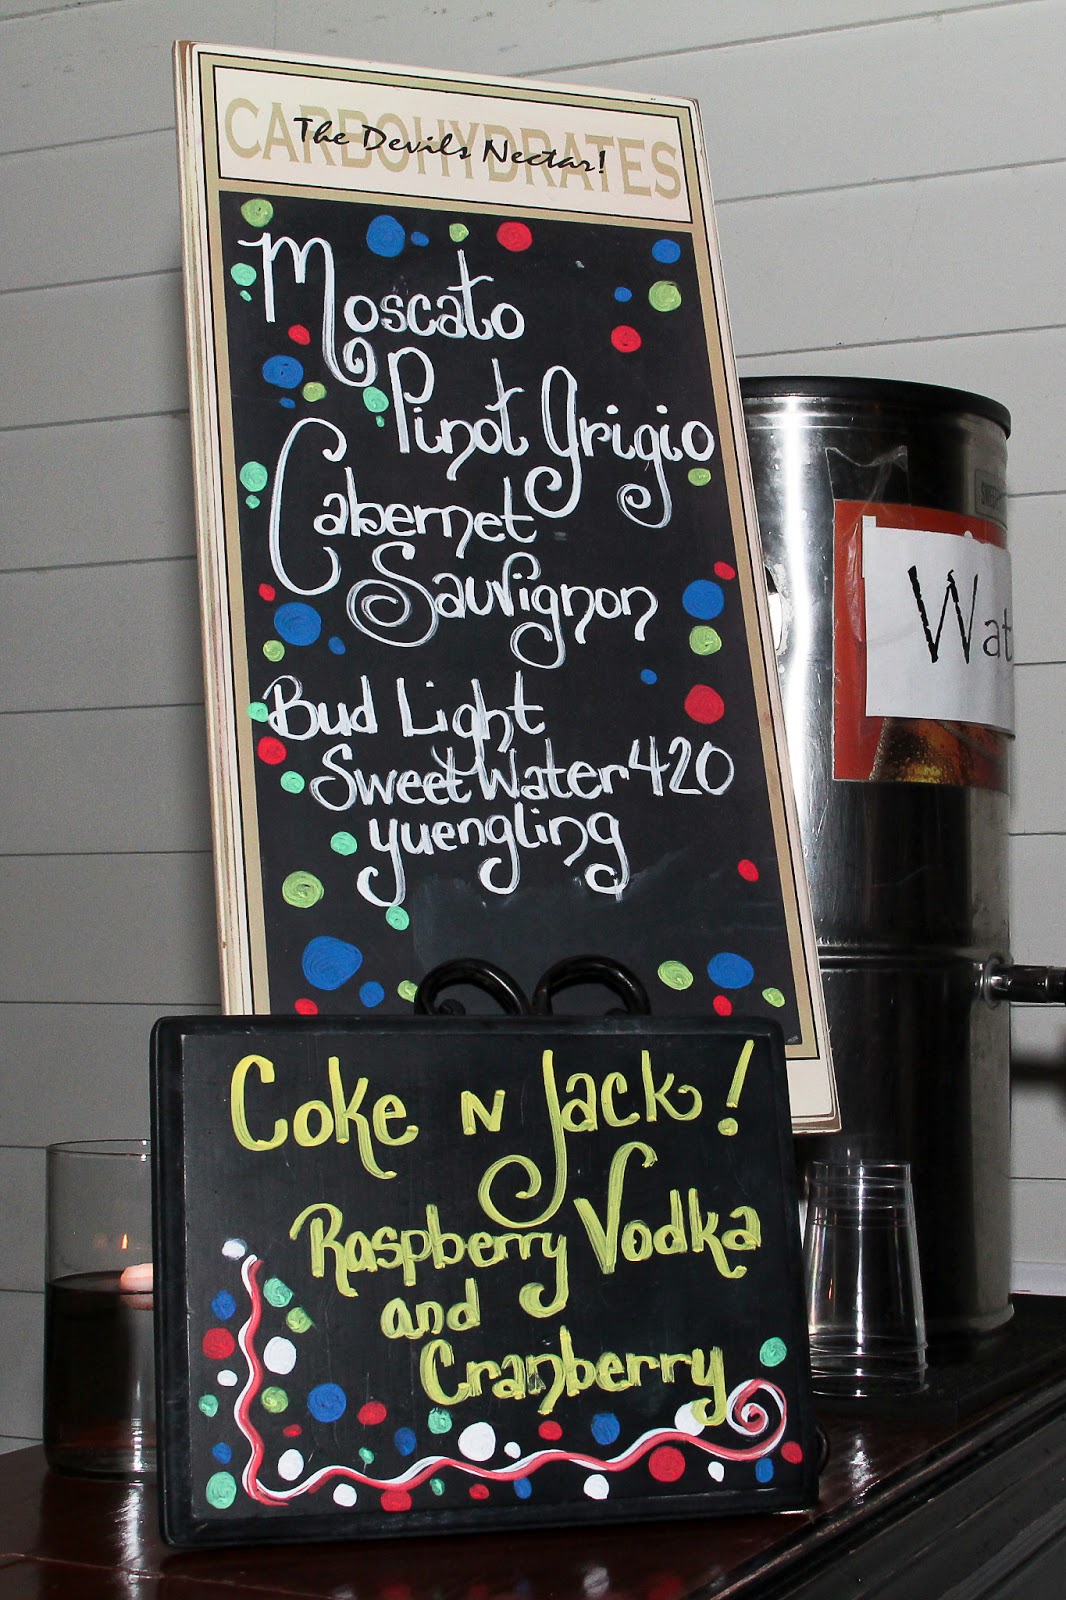 CARBOHYDRATES
The Devils Nectar!
Moscato
Pinot Grigio
Cabernet
Sauvignon
Bud Light
SweetWater 420
yuengling
Wat
Coke N Jack!
Raspberry Vodka
and
Cranberry